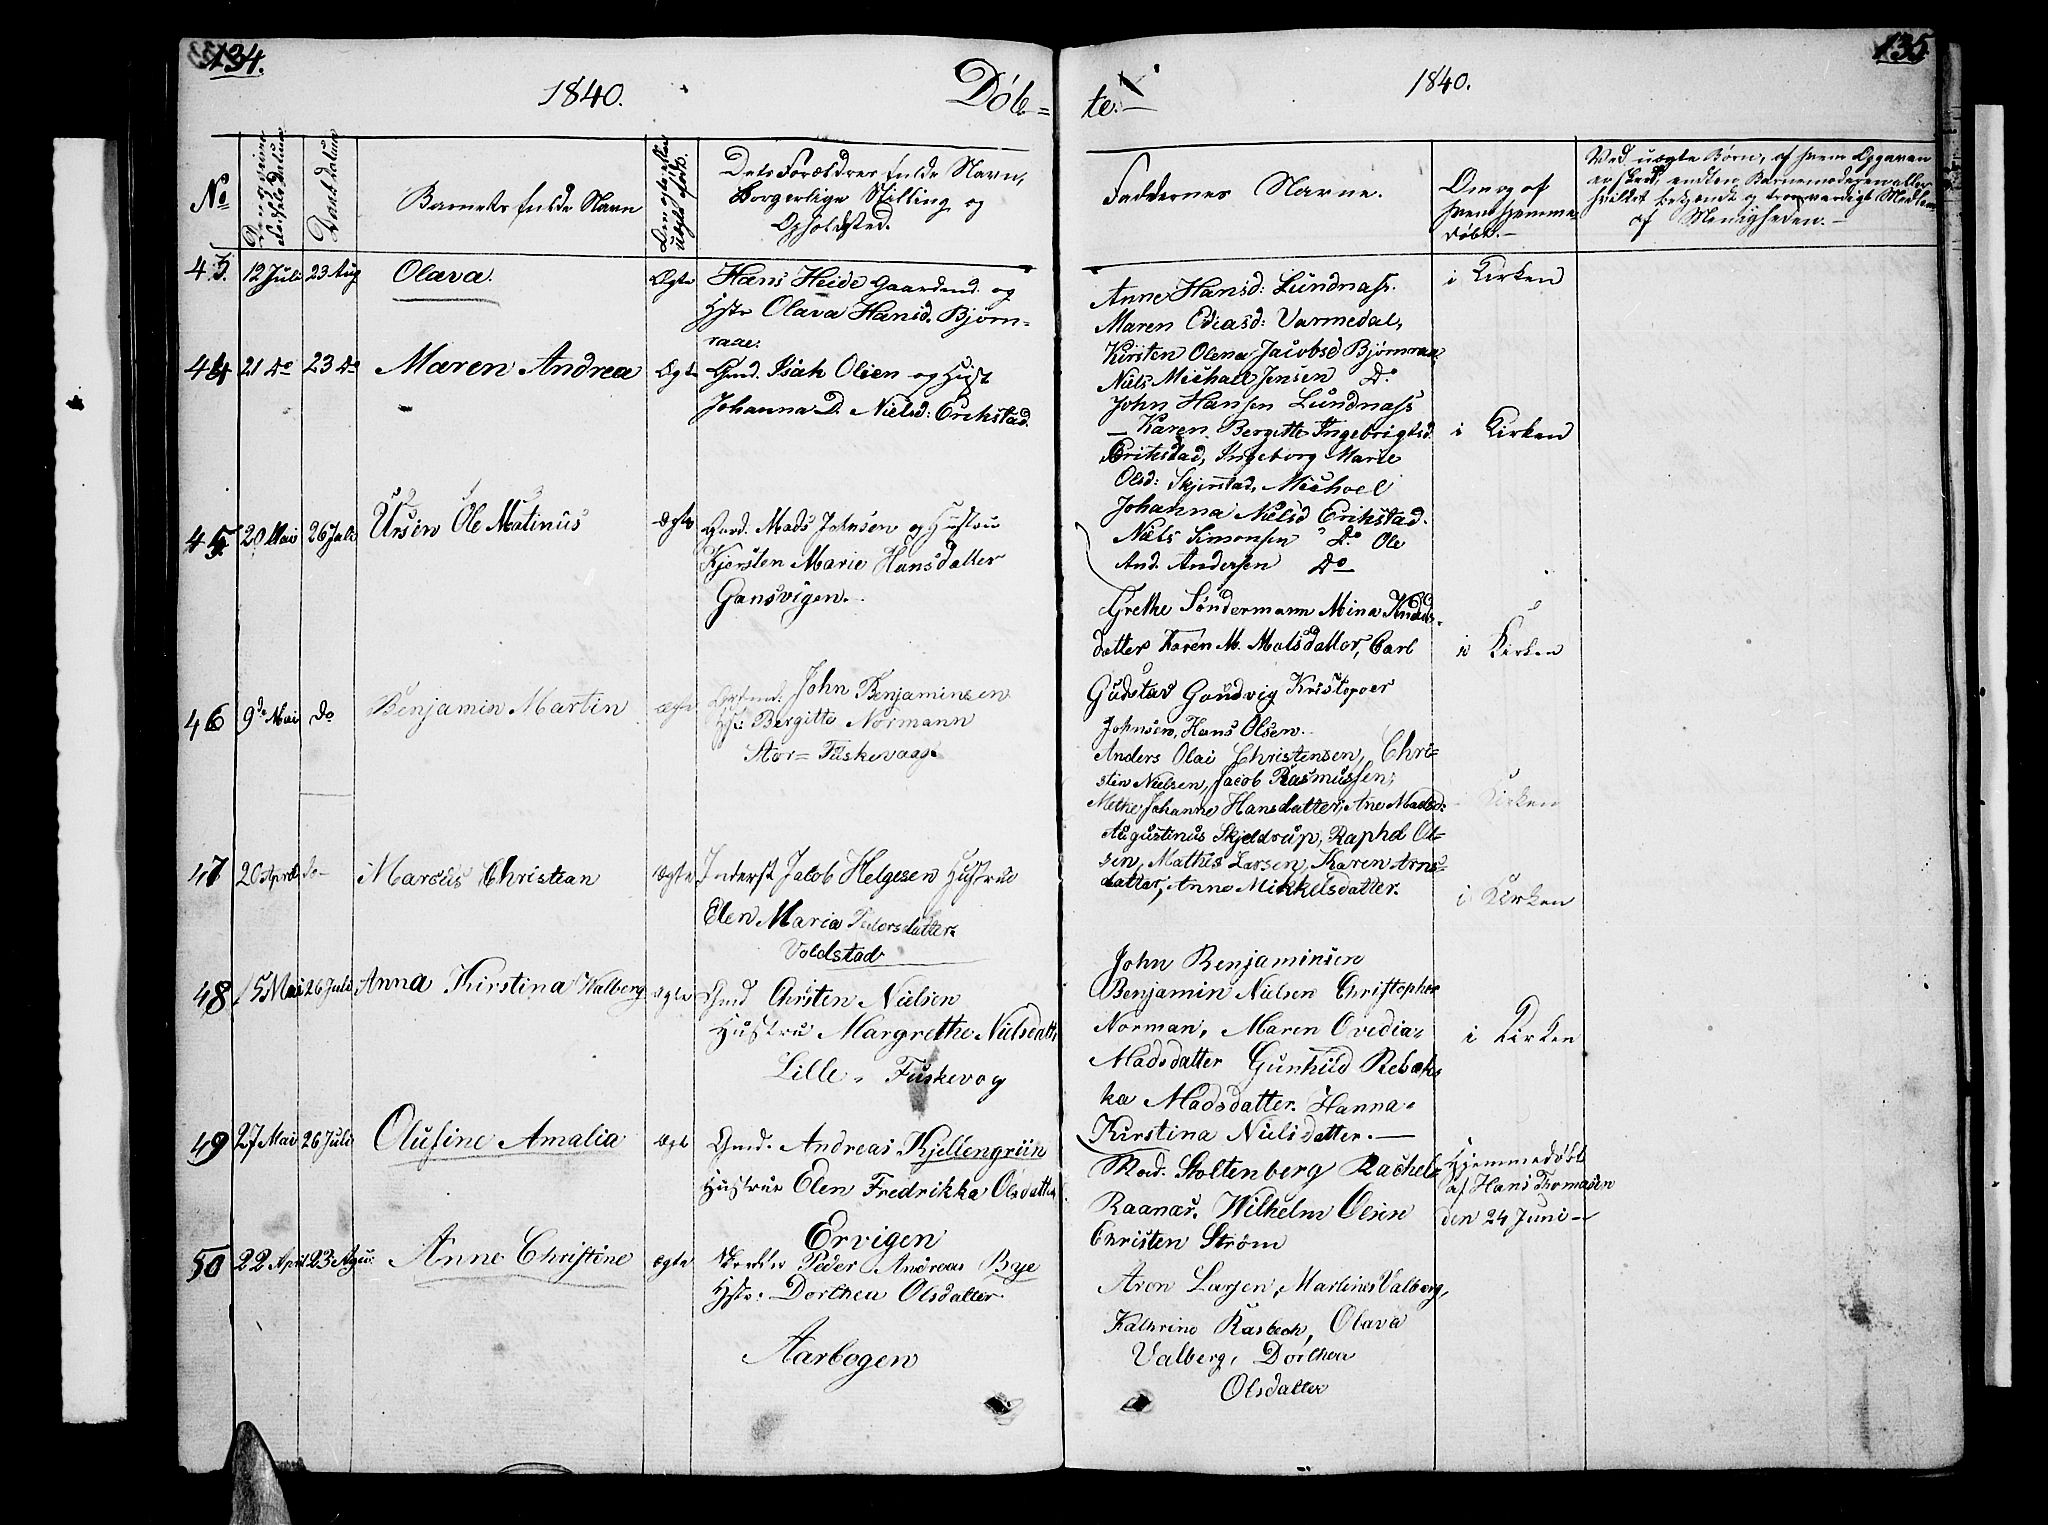 134.
1840.
Døb=
No
Daabsdatum
Barnets fulde Navn
Dets Forældres fulde Navn,
Borgerlige Stilling og
Opholdsted.
43. 12 Juli 23 Aug Olava. Ægte Hans Heide Gaardmd. og
Hstr Olava Hansd. Bjørn-
raae.
44 21 Do 23 Do Maren Andrea Ægte Gmd. Isak Olsen og Hust
Johanna D. Nielsd: Erikstad.
45 20 Mai 26 Juli Ursin Ole Matinus Ægte Gard. Mads Johnsen og Hustru
Kjersten Marie Hansdatter
Gansvigen.
46 9de Mai do Benjamin Martin ægte John Benjaminsen
Hst: Bergitte Normann
Stor= Fuskevaag
47 20 April do- Marcus Christian Ægte Inderst Jacob Helgesen Hustrue
Elen Maria Pedersdatter
Voldstad
48 15 Mai 26 Juli Anna Kirstina Walberg ægte Gmd Chrsten Nielsen
Hustru Margrethe Nielsdatt.
Lille- Fuskevog
49 27 Mai 26 Juli Olusine Amalia Ægte Gmd. Andreas Kjellengreiin
Hustrue Elen Fredrikka Olsdatter
Ervigen
50 22 April 23 Agu. Anne Christine ægte Peder Andreas Bye
Hstr. Dorthea Olsdatter
Aarbogen
135
1840.
te.-
Faddernes Navne.
Om og af
hvem hjemme
døbt.-
Ved uægte Børn, af hvem Opgaven
er skeed, enten Barnemoderen eller
hvilket bekjendt og troeværdigt Medlem
af Menigheden.-
Anne Hansd: Lundnass. i Kirken
Maren Ediasd: Varmedal,
Kirsten Olena Jacobsd Bjørnraa
Niels Michael Jensen Do
John Hansen Lundnass
- Karen Bergitte Ingebrigtsd. i Kirken
Erikstad, Ingeborg Marie
Olsd: Skjerstad, Michael
Johanna Nielsd Erikstad.
Niels Simonsen Do Ole
And. Andersen Do
Grethe Søndermann Mina Knuds-
datter Karen M. Matsdatter, Carl i Kirken
Gudstav Gondvig Kristopoer
Johnsen, Hans Olsen.
Anders Olai Christensen, Chri=
stin Nielsen, Jacob Rasmussen,
Methe Johanne Hansdatter, Ane Madsd: Kirken
Augustinus Skjeldrup, Raphel Ol=
sen, Mathis Larsen, Karen Arns=
datter, Anne Mikkelsdatter. i Kirken
John Benjaminsen
Benjamin Nielsen Christopher
Norman, Maren Ovedia- i Kirken
Madsdatter Gunhild Rebek
ka Madsdatter. Hanna-
Kirstina Nielsdatter.-
Mad. Stoltenberg Rachel Hjemmedøbt
Raanæs. Wilhelm Olsen af Hans Thomasen
Christen Strøm den 24 Juni-
Aron Larsen, Martines Valberg,
Kathrine Rasbech, Olava
Valberg, Dorthea
Olsdatter